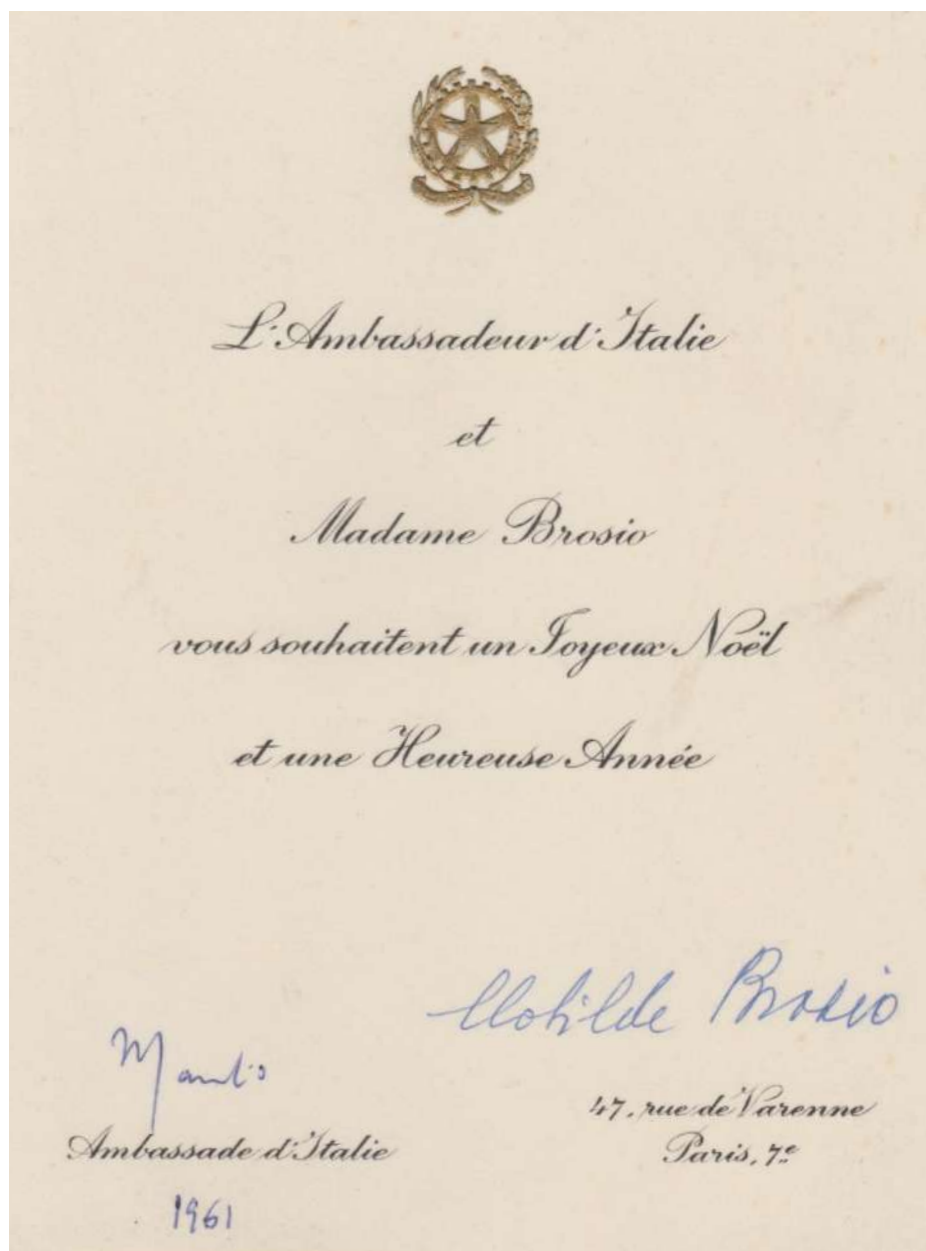 L'Ambassadeur d'Italie
et
Madame Brosio
vous souhaitent un Joyeux Noël
et une Heureuse Année
Clotilde Brosio
Manlio
47, rue de Varenne
Ambassade d'Italie
Paris, 7e
1961